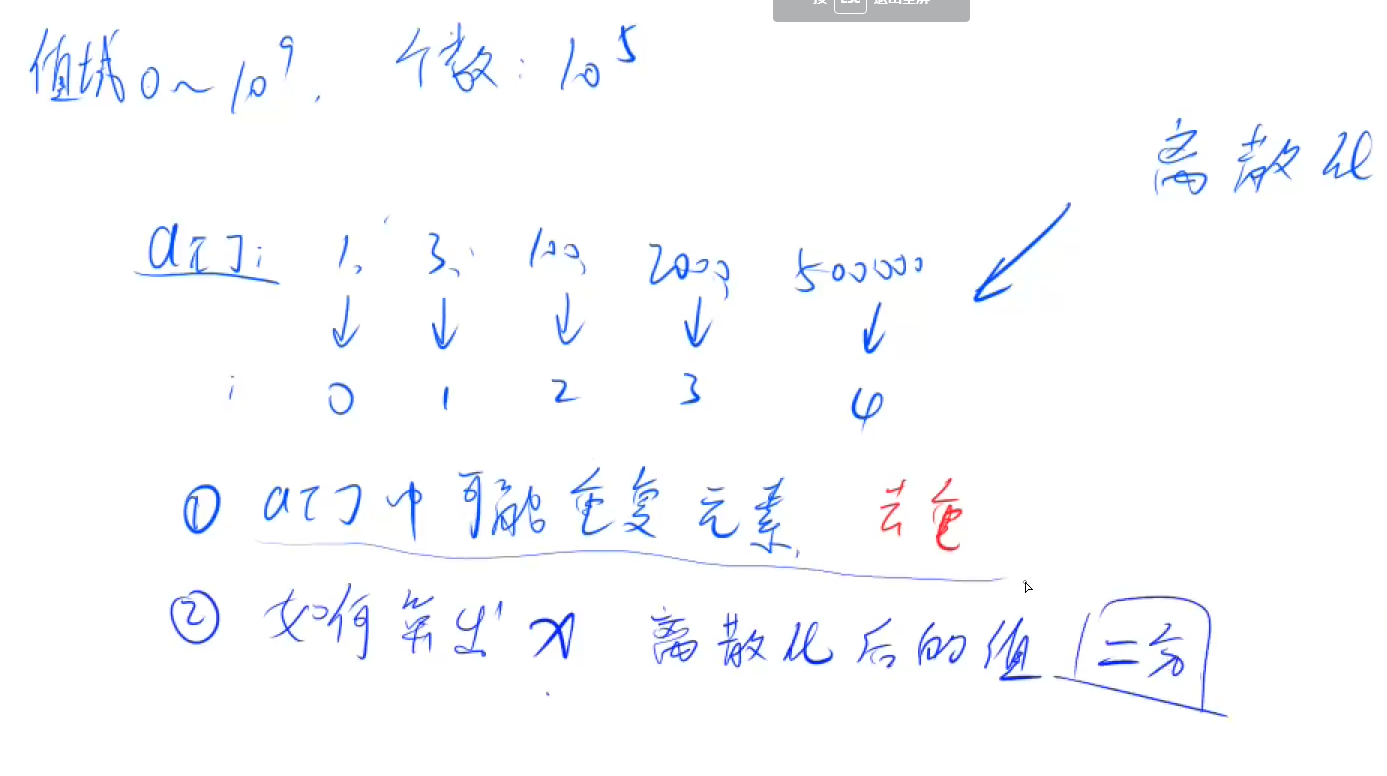 按 Esc 退出全屏
值域 0~10⁹. 个数: 10⁵
离散化
a[]: 1, 3, 100, 2000, 500000
↓ ↓ ↓ ↓ ↓
: 0 1 2 3 4
① a[]中可能重复元素, 去重
② 如何算出 x 离散化后的值 二分